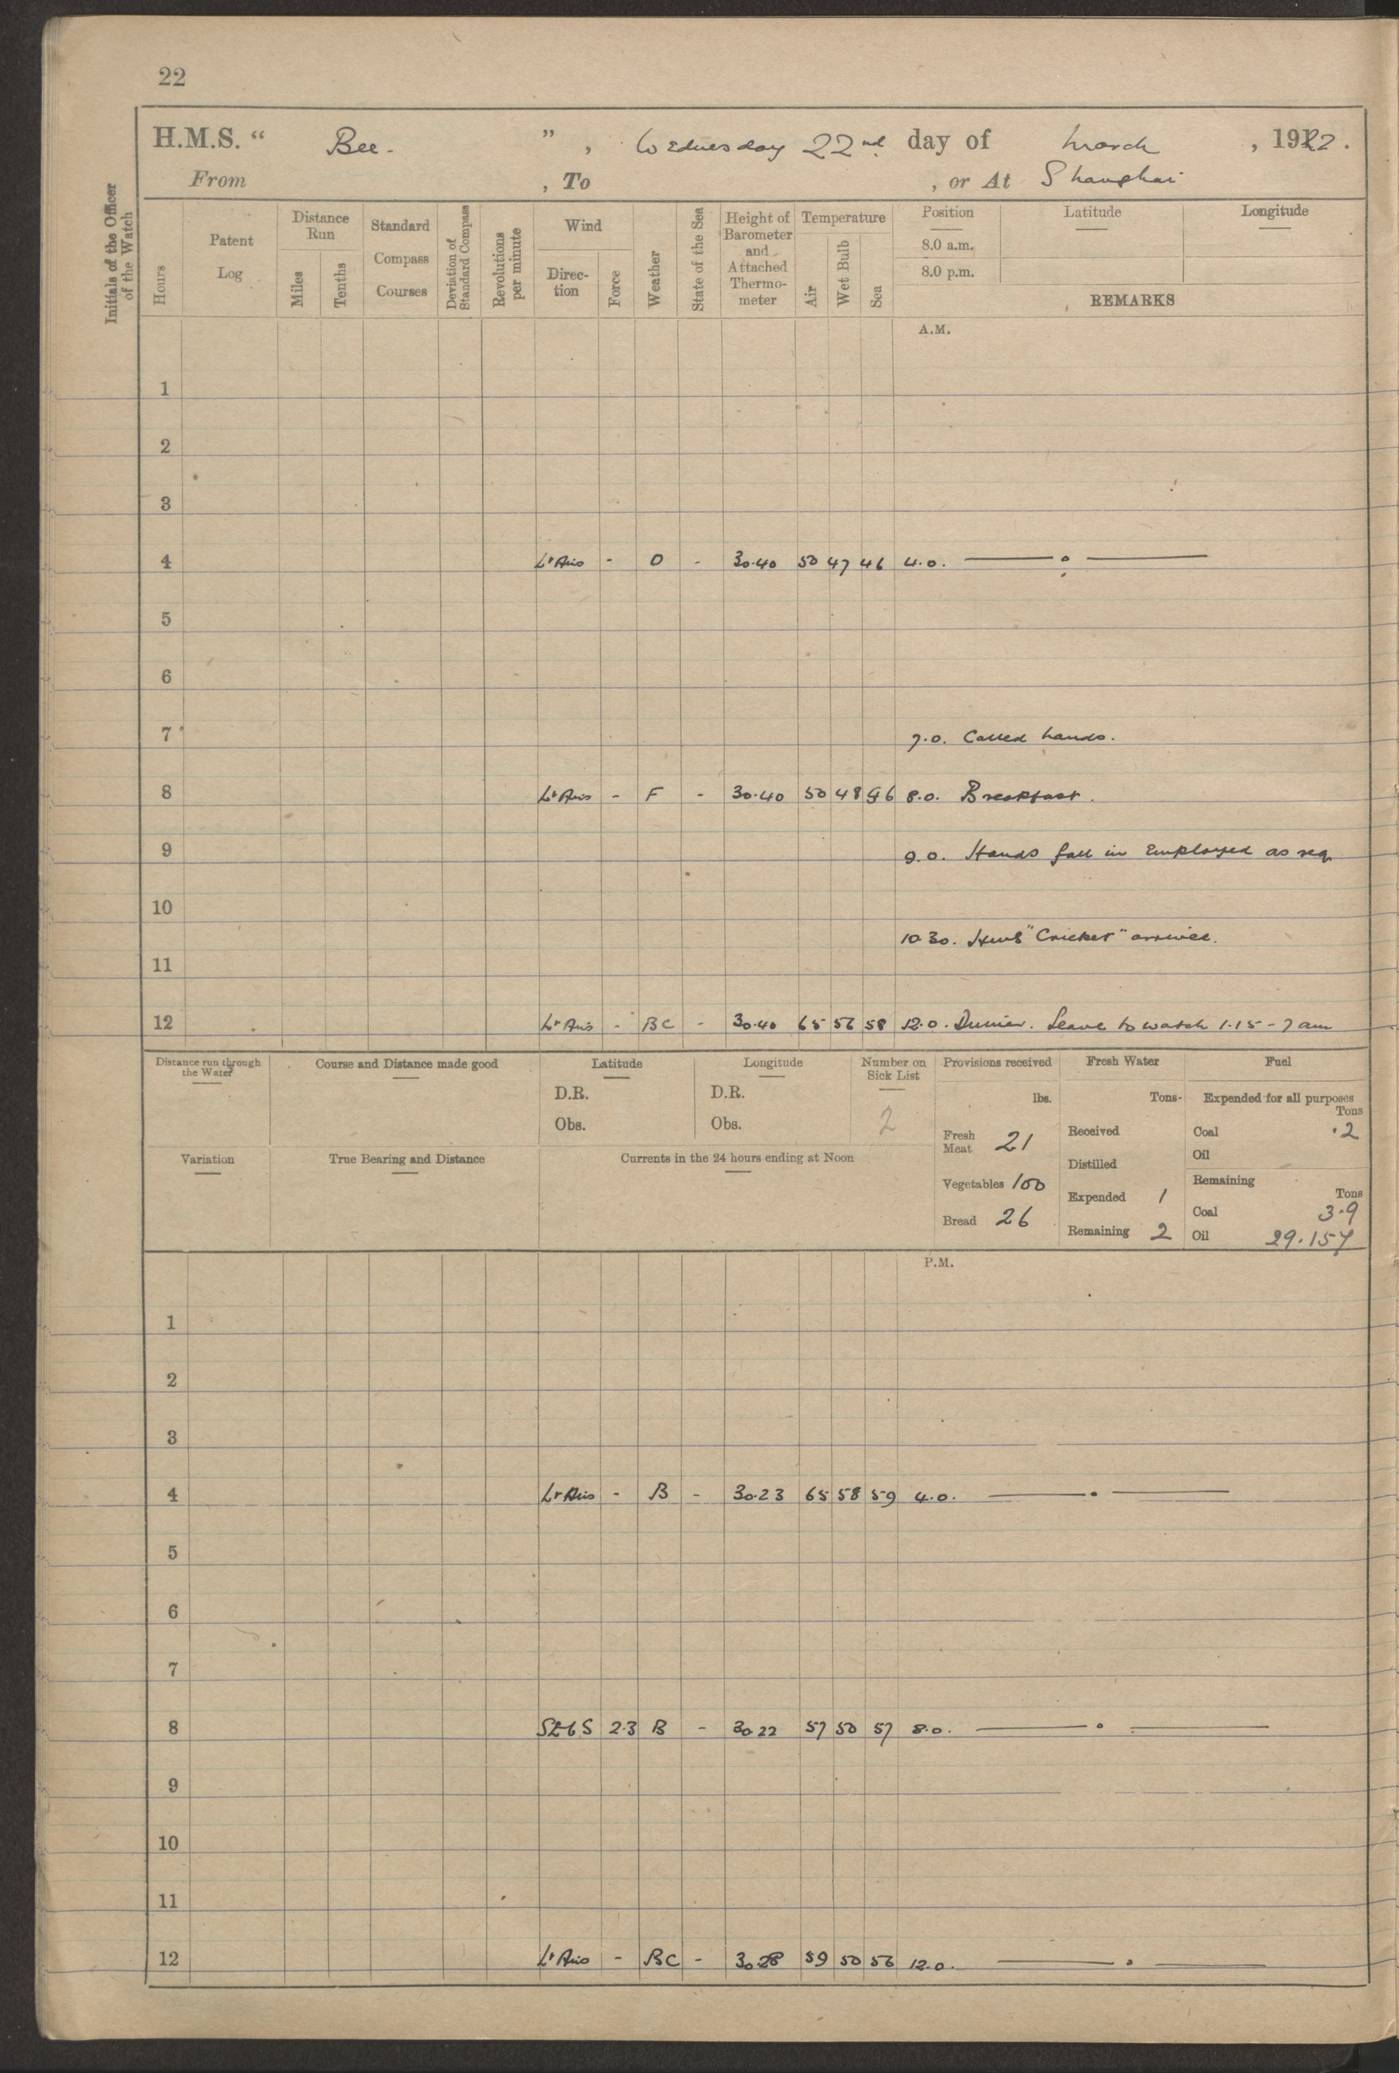 22
H.M.S. " Bee. ", Wednesday 22nd day of March, 1922.
From , To , or At Shanghai
Initials of the Officer of the Watch
Hours
Patent Log
Distance Run
Miles
Tenths
Standard Compass Courses
Deviation of Standard Compass
Revolutions per minute
Wind
Direc-tion
Force
Weather
State of the Sea
Height of Barometer and Attached Thermo-meter
Temperature
Air
Wet Bulb
Sea
Position
Latitude
Longitude
8.0 a.m.
8.0 p.m.
REMARKS
A.M.
1
2
3
4 Lt Airs - O - 30.40 50 47 46 4.0. —— o ——
5
6
7 7.0. Called hands.
8 Lt Airs - F - 30.40 50 48 46 8.0. Breakfast.
9 9.0. Hands fall in Employed as req.
10
10.30. HMS "Cricket" arrived.
11
12 Lt Airs - BC - 30.40 65 56 58 12.0. Dinner. Leave to watch 1.15 - 7 am
Distance run through the Water
Course and Distance made good
Latitude
D.R.
Obs.
Longitude
D.R.
Obs.
Number on Sick List
2
Provisions received
lbs.
Fresh Meat 21
Vegetables 100
Bread 26
Fresh Water
Tons-
Received
Distilled
Expended 1
Remaining 2
Fuel
Expended for all purposes
Tons
Coal .2
Oil
Remaining
Tons
Coal 3.9
Oil 29.157
Variation
True Bearing and Distance
Currents in the 24 hours ending at Noon
P.M.
1
2
3
4 Lt Airs - B - 30.23 65 58 59 4.0. —— . ——
5
6
7
8 SEbS 2.3 B - 30.22 57 50 57 8.0. —— o ——
9
10
11
12 Lt Airs - BC - 30.28 59 50 56 12.0. —— . ——